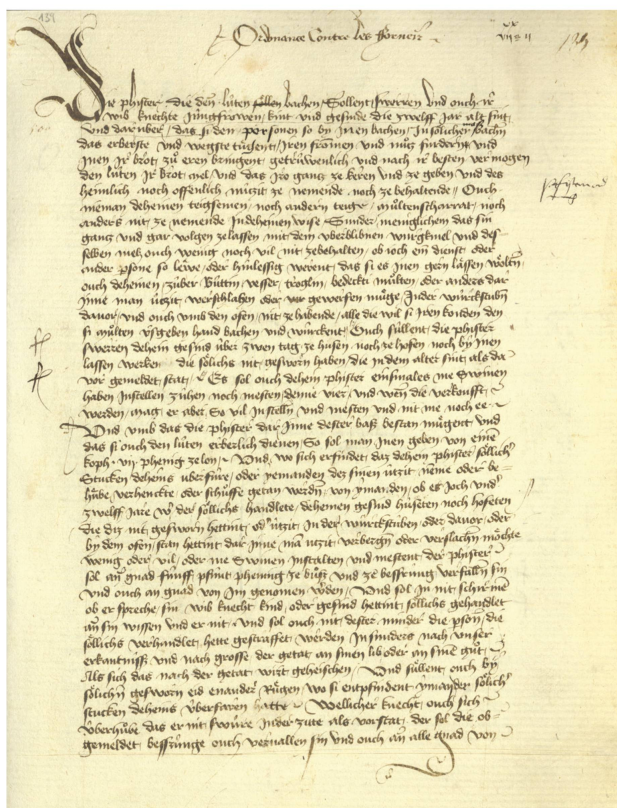 134
Ordnance Contre les fornier
xx
vii s ii
139
Die phister die den lüten bachen Söllent swerren vnd ouch ir
wib knechte Jungfrowen kint vnd gesinde die zwelff Jar alt sint
vnd darüber das si den personen so by inen bachen In sölichen bachen
das erberste vnd wegste tügent Iren fromen vnd nutz
Inen ir brot zü eren bringent getrüwenlich vnd nach ir besten vermögen
den lüten ir brot mel vnd das Iro gantz ze keren vnd ze geben vnd des
heimlich noch offenlich nützit ze nemende noch ze behaltende Ouch
nieman deheinen noch andern teyge noch
anders nit ze nemende Indeheinen wise Sunder menglichem das sin
gantz vnd gar volgen ze lassen mit dem vberblibnen würgkmel vnd des
selben mel ouch wenig noch vil nit ze behalten ob ioch ein dienst oder
ander psone so lewe oder hinlessig werent das si es inen gern lassen wöltin
ouch deheinen züber Büttin vesser tröglin bedeckt mülten oder anders dar
Inne man ützit verschlahen oder vor gewerfen müge In der würckstuben
dauor vnd ouch vmb den ofen nit ze habende alle die wil si iren kunden den
si mülten vsgeben hand bachen vnd würckent Ouch süllent die phister
swerren dehein gesind über zwen tag ze husen noch ze hofen noch by inen
lassen werken die sölichs nit gesworn haben die in dem alter sint als da
vor gemeldet stat Es sol ouch dehein phister einsmales me Swinen
haben Instellen zühen noch mesten denne vier vnd wen die verkoufft
werden mag er aber So vil Instelln vnd mesten vnd nit me noch ee
Vnd vmb das die phister dar Inne dester bas bestan mügent vnd
das si ouch den lüten erberlich dienen So sol man inen geben von eine
koph vii phenig ze lon Vnd wo sich erfindet daz dehein phister söllich
Stucken deheins übersüre oder yemanden des sinen ützit neme oder be-
hübe verhenckte oder schüffe getan werden von ymanden ob es ioch vnder
zwelff Jare wer der söllichs handlete deheinen gesind huseten noch hofeten
die diz nit gesworn hettint oder ützit In der würckstuben oder dauor oder
by dem ofen stan hettint dar Inne man ützit verbergen oder verslachen möchte
wenig oder vil oder me Swinen instalten vnd mestent der phister
sol an gnad fünff pfunt phennig ze büss vnd ze bessrung verfallen sin
vnd ouch an gnad von Im genomen werden Vnd sol in nit schirmen
ob er spreche sin wib knecht kind oder gesind hettint söllichs gehandlet
an sin wissen vnd er nit vnd sol ouch nit dester minder die pson die
söllichs verhandlet hette gestraffet werden Insunders nach vnser
erkantniss vnd nach grosse der getat an sinen lib oder an sine güt
Als sich das nach der getat wirt geheischen Vnd süllent ouch by
sölichem geswornen eid enander Rügen wo si entpfindent ymander sölich
stucken deheins überfaren hatte Wellicher knecht ouch sich
überhübe das er nit swüre Inder zite als vorstat der sol die ob-
gemeldet bessrunge ouch veruallen sin vnd ouch an alle gnad von